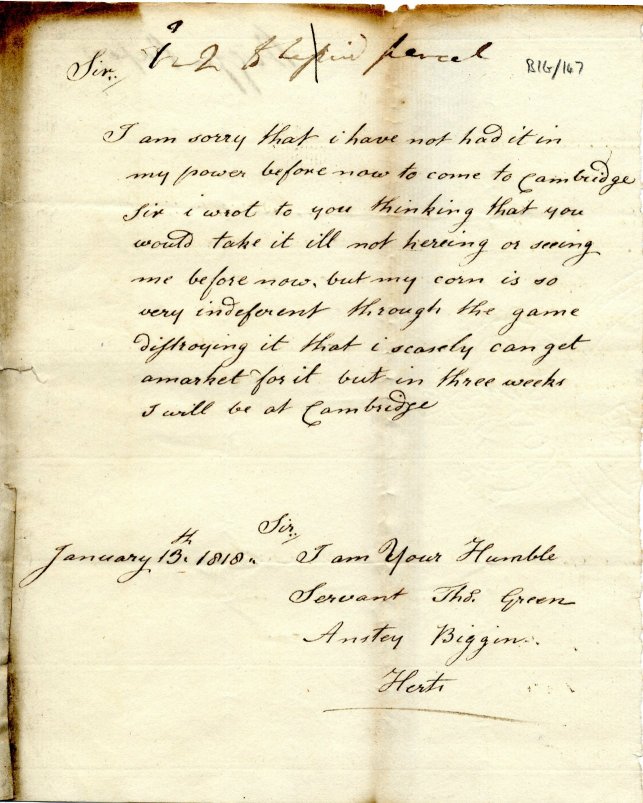 Sir.,
parcel
BIG/167
I am sorry that i have not had it in
my power before now to come to Cambridge
Sir i wrot to you thinking that you
would take it ill not hereing or seeing
me before now, but my corn is so
very indeferent through the game
distroying it that i scasely can get
amarket for it but in three weeks
I will be at Cambridge
Sir.,
January 13th. 1818. I am Your Humble
Servant Thos. Green
Anstey Biggin.
Herts